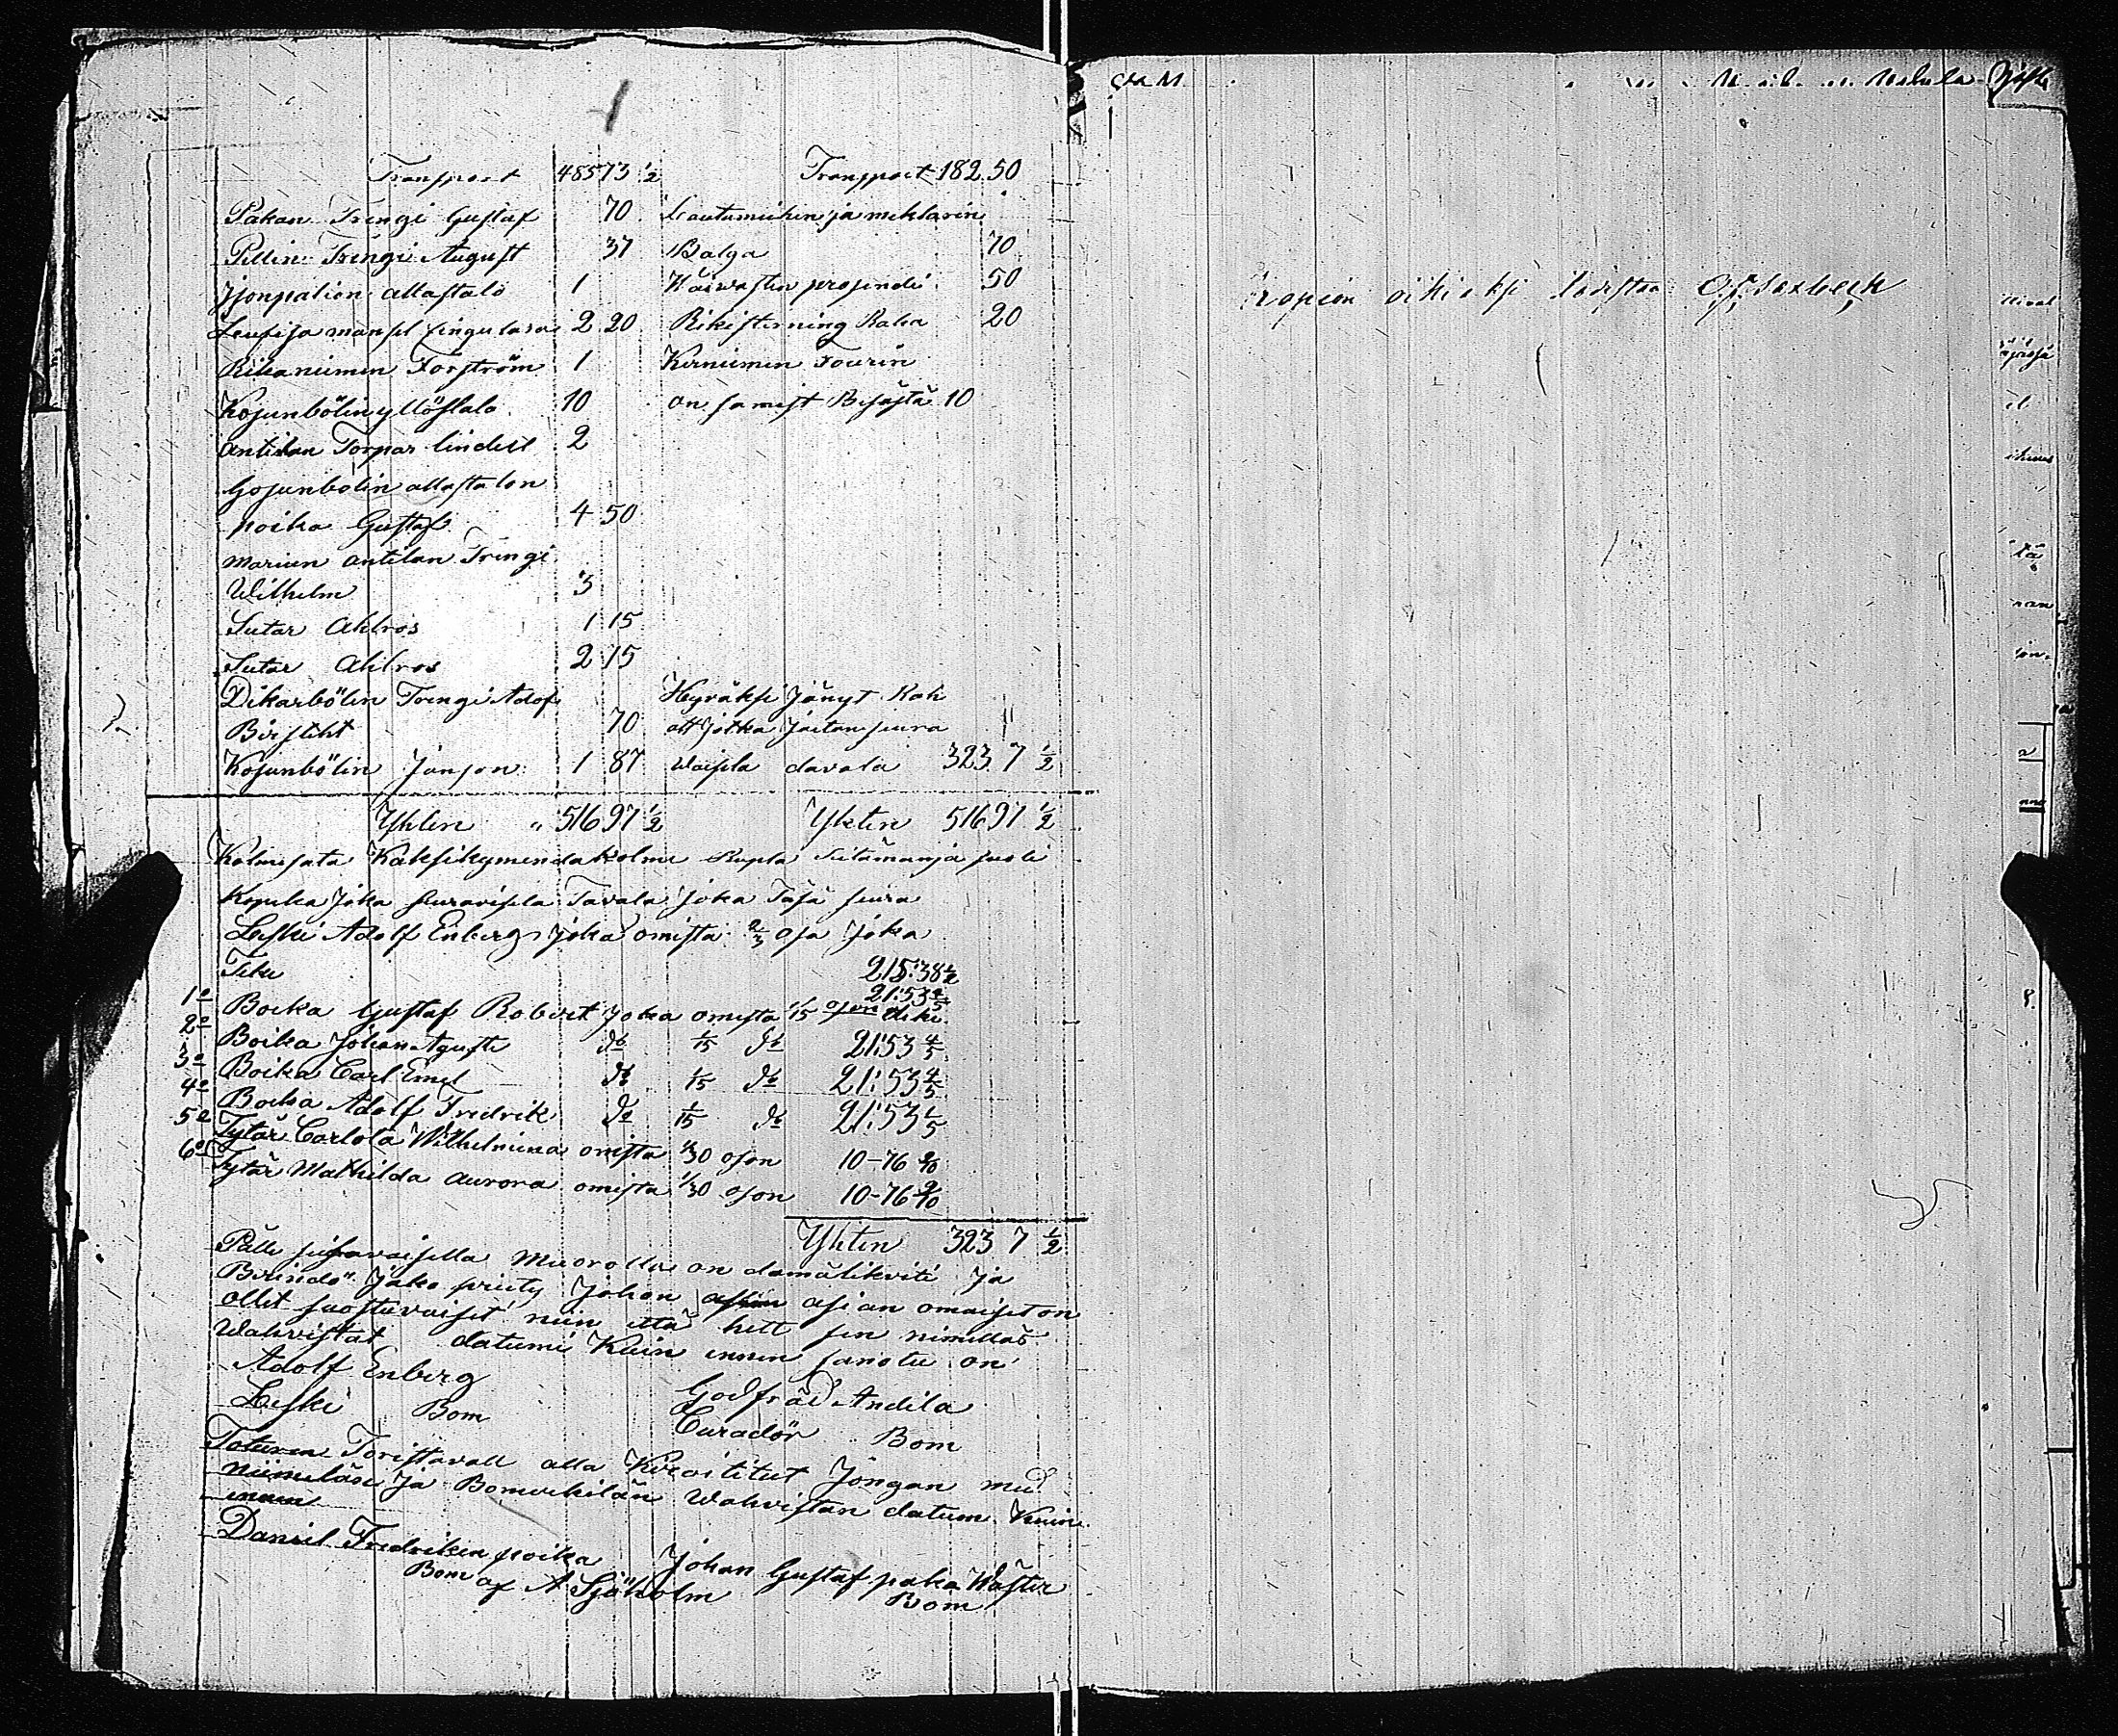 Transport 485 73 ½ Transport 182 50
Pakan Trengi Gustaf 70 Lautamiehin ja meklarin
Pellin Trengi August 37 Balga 70
Jjonpalion allastalo 1 Käswastin prosendi 50
2 20 20
Rikaniemen Forström 1 Kerniemen Tourin
Kojunbölin yllöstalo 10 on samist Besästä 10
antilan Torpar lindell 2
Gojunbölin allastalon
poika Gustaf 4 50
marien antilan Trengi
Wilhelm 3
Sutar Ahlros 1 15
Sutar Ahlros 2 15
Dikarbölin Trengi Adof Hyväksi Jänyt Rah
70 att jotka Jaetan seura
Kojunbölin Janson 1 87 waisela davala 323 7 ½
Yhten " 516 97 ½ Yhten 516 97 ½
Kolmesata Kaksikymendakolme Rupla Seitämänja puoli
Kopeka Joka seuravisela Tavala joka Tasa seura
Leski Adolf Enberg joka omista ⅔ osa joka
Teke 215:38 ½
21:53 4/5
1o Boika Gustaf Robert joka omista 1/15 oson deke
2o Boika Johan Agusti do 1/15 do 21:53 4/5
3o Boika Carl Emel do 1/15 do 21:53 4/5
4o Boika Adolf Fredrik do 1/15 do 21:53 4/5
5o Tytär Carlota Wilhelmina omista 1/30 oson 10-76 9/10
6o Tytär Mathilda aurora omista 1/30 oson 10-76 9/10
Yhten 323 7 ½
Pälle seuravaisella Muorolla on damälikviti ja
Jako priety Johon asian omaiset on
ollet suostuvaiset niin että hett sen nimelläs
Wahvistat datumi Kuin ennen sanotu on
Adolf Enberg
Leski Bom Godfräd Andila
Curadör Bom
Toturen Toristavall alla Kirjoititut Jongan med
niimeläse Ja Bomerkilän Wahvistan datum Kuin
ennen
Daniel Fredrikin poika Johan Gustaf paka Wäster
Bom af A Sjöholm Bom
kopion oikiaksi todistaa